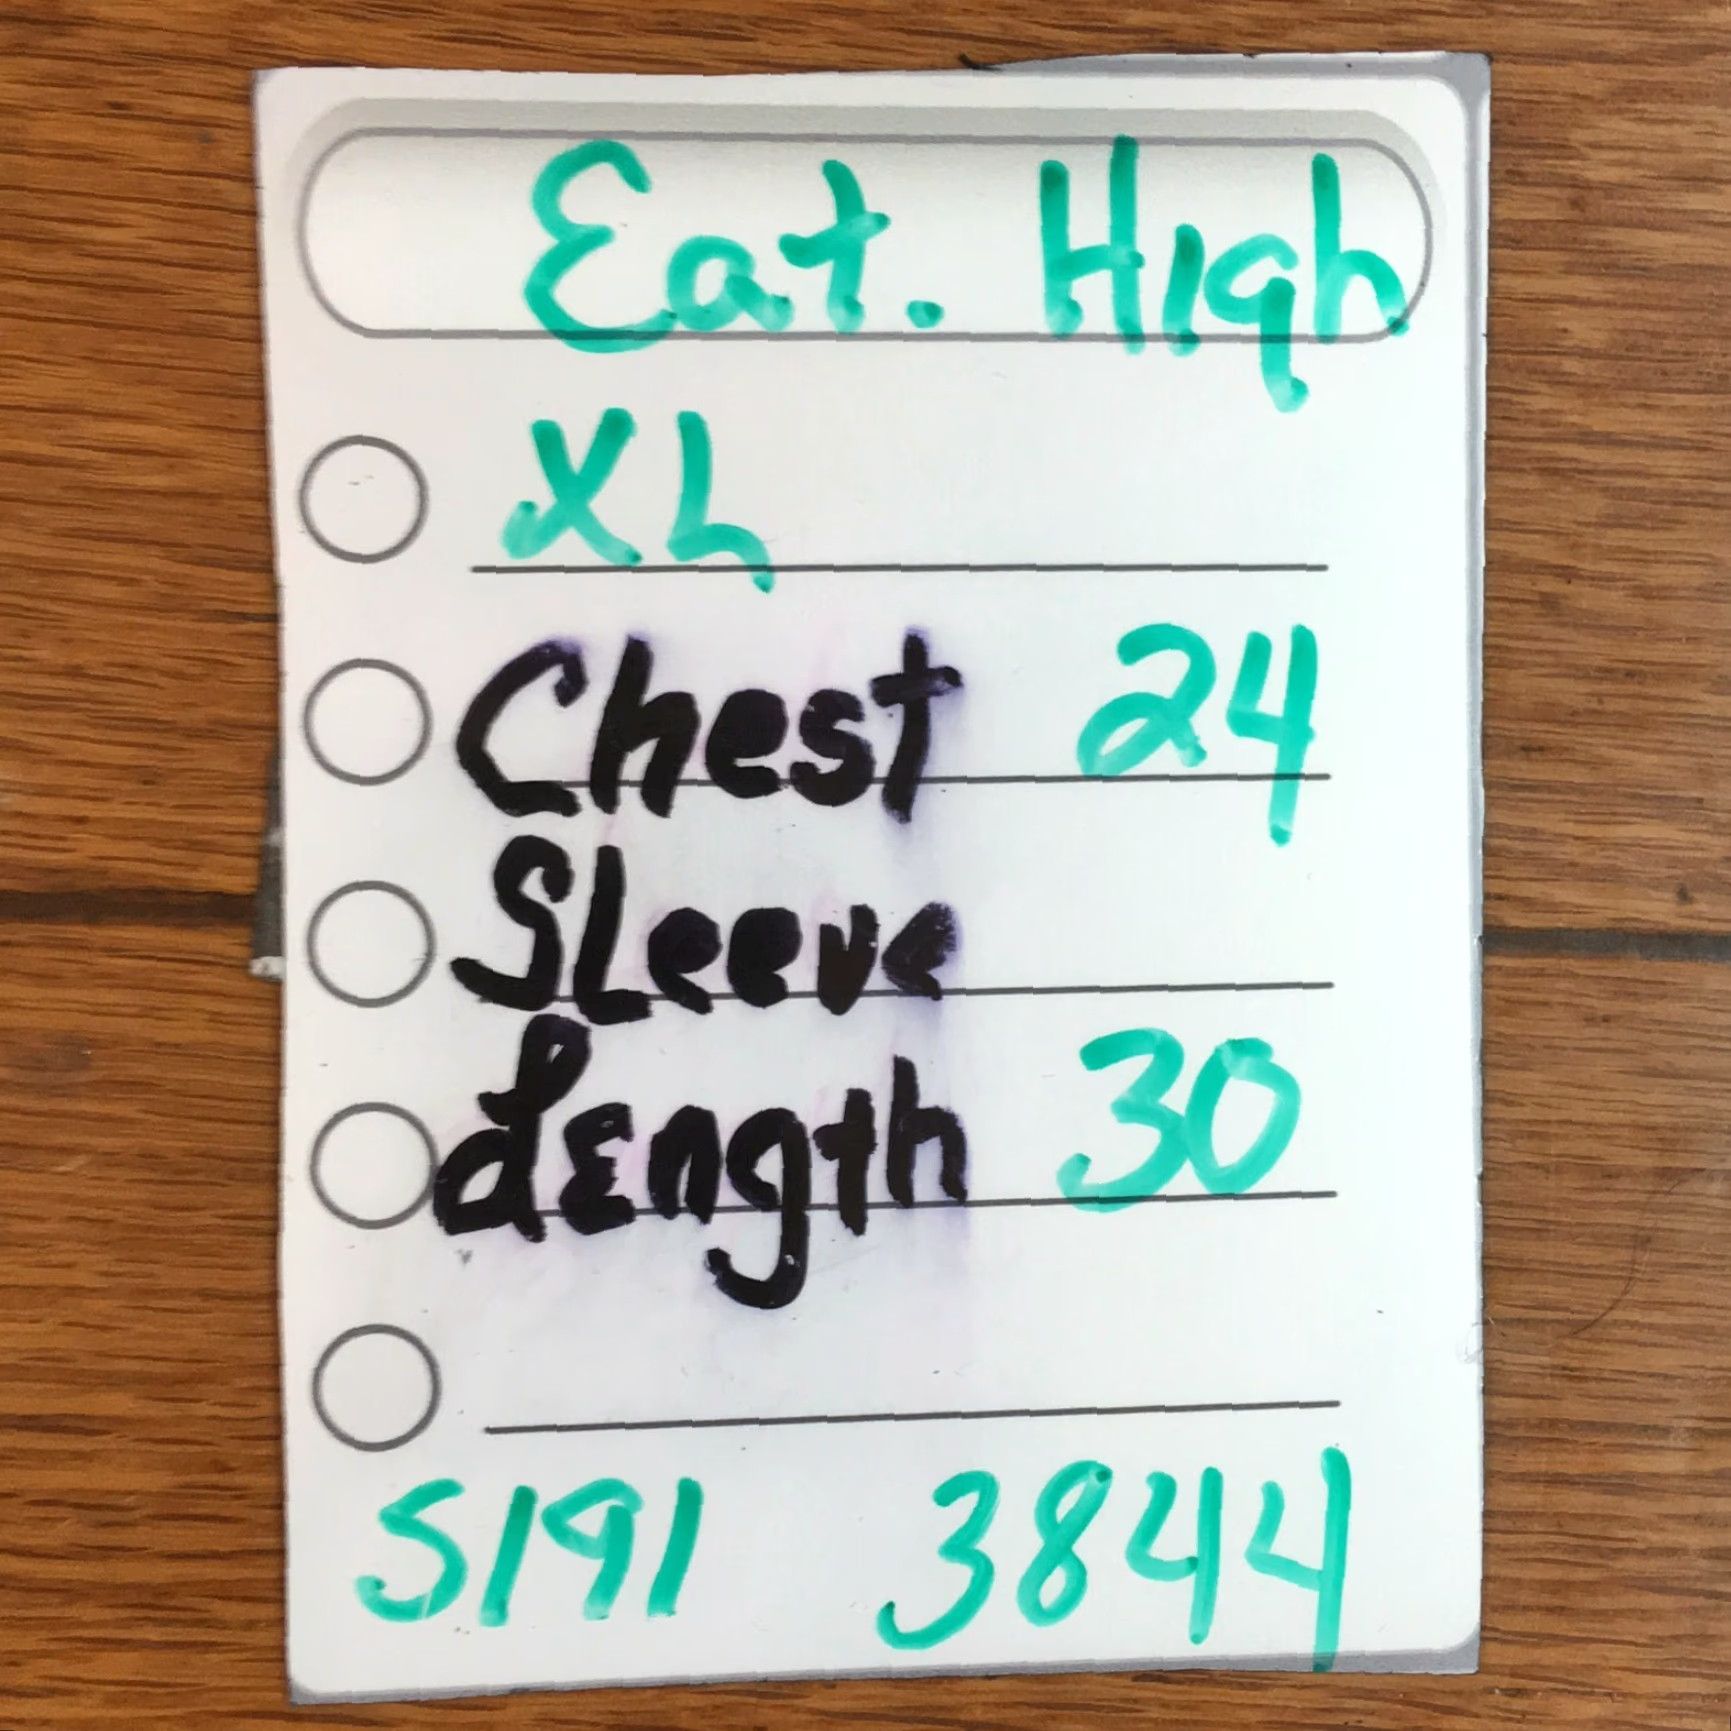 Eat. High
XL
Chest 24
SLeeve
Length 30
S191 3844